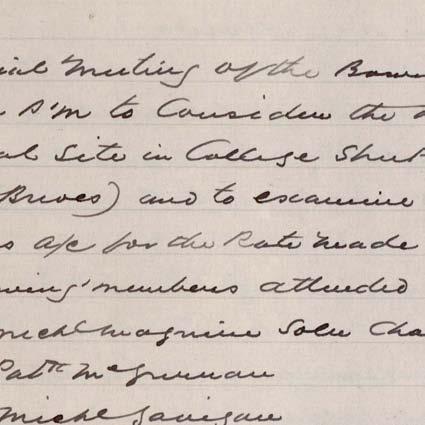 ial Meeting of the Boar
P'm to Consider the
al Site in College Street
Brives) and to examine
s a/c for the Rate Made
owing members attended
Michl Maguire Solr Cha
Patk McGrenan
Michl Gavigan